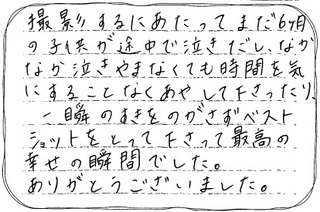 撮影するにあたってまだ6ヶ月
の子供が途中で泣きだし、なか
なか泣きやまなくても時間を気
にすることなくあやして下さったり、
一瞬のすきをのがさずベスト
ショットをとって下さって最高の
幸せの瞬間でした。
ありがとうございました。